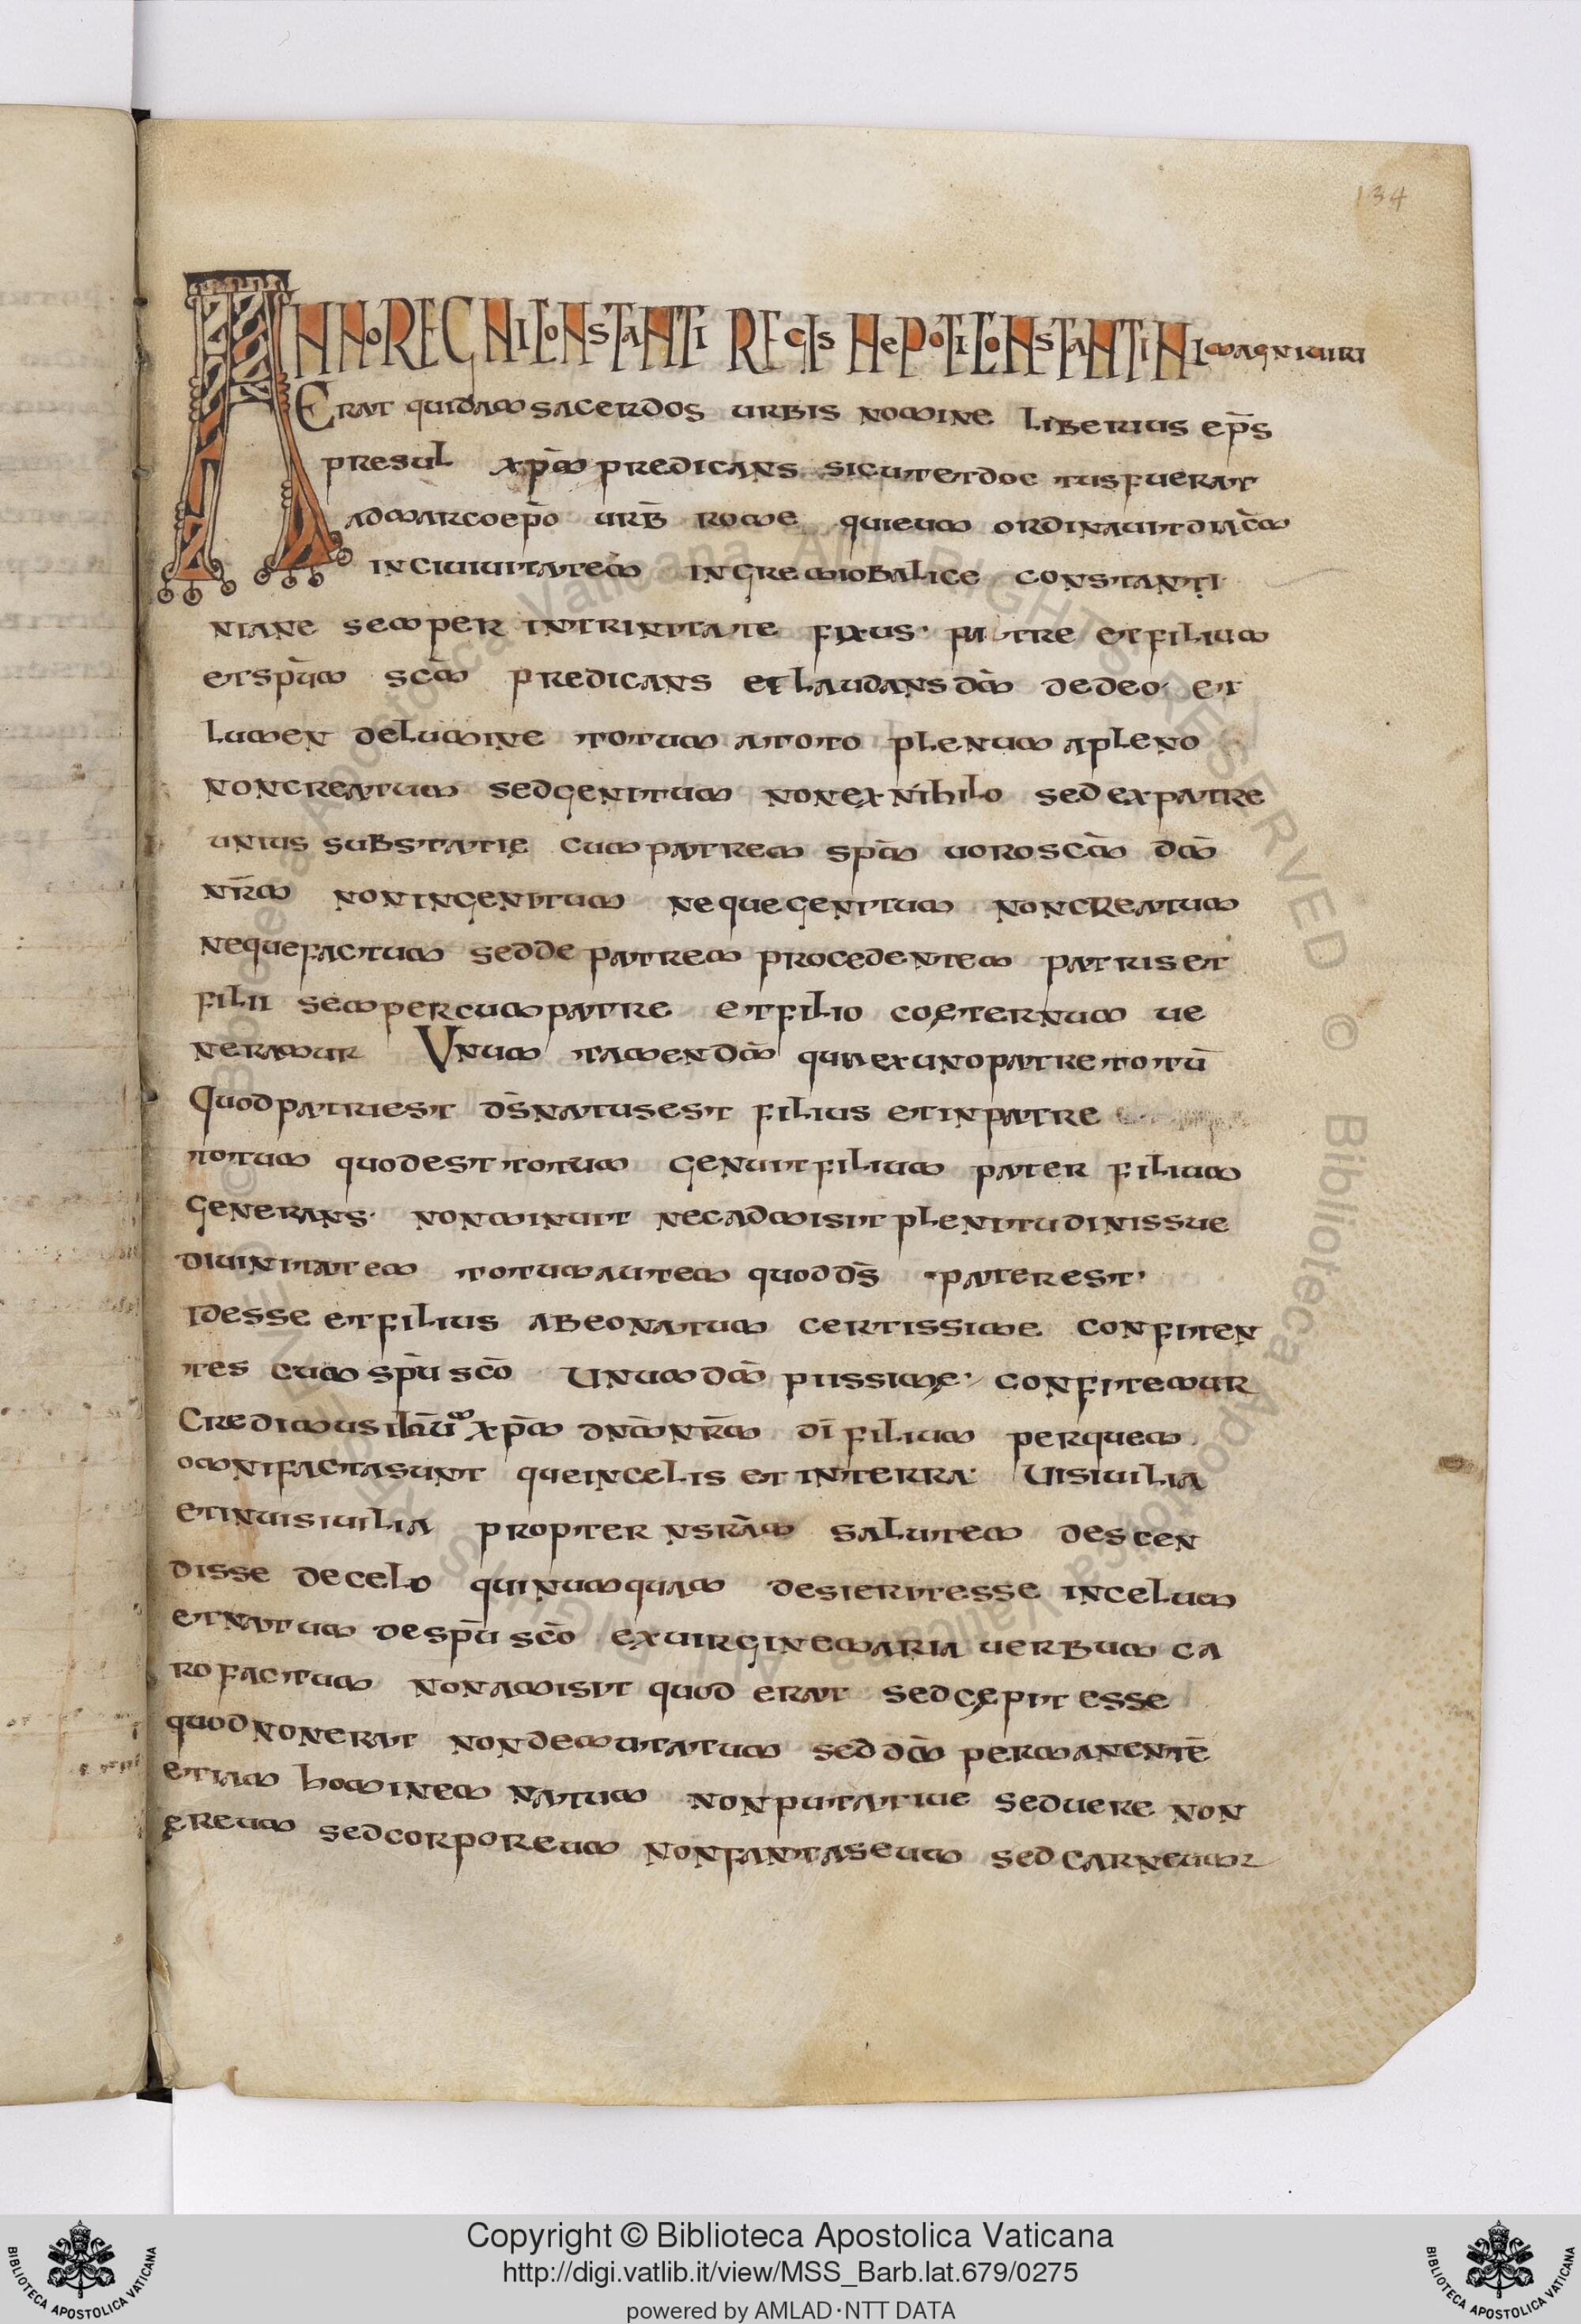 134
ANNO REGNI CONSTANTI REGIS NEPOTI CONSTANTINI magni uiri
Erat quidam sacerdos urbis nomine liberius ep̄s
presul xp̄m predicans sicut et doctus fuerat
ad marco ep̄o urb̄ rome qui eum ordinauit diac̄m
in ciuiuitatem in gremio balice constanti
niane semper in trinitate fixus· patre et filium
et sp̄um sc̄m predicans et laudans dm̄ de deo· et
lumen de lumine totum a toto plenum a pleno
non creatum sed genitum non ex nihilo sed ex patre
unius substatię cum patrem sp̄m uoro sc̄m dm̄
nr̄m non ingenitum neque genitum non creatum
neque factum sed de patrem procedentem patris et
filii semper cum patre et filio coęternum ue
neramur Unum tamen dm̄ quia ex uno patre totū
Quod patri est ds̄ natus est filius et in patre
totum quod est totum genuit filium pater filium
generans· non minuit nec admisit plenitudinis sue
diuinitatem totum autem quod ds̄ pater est·
Idesse et filius ab eo natum certissime confiten
tes cum sp̄u sc̄o Unum dm̄ piissimę· confitemur
Credimus ih̄um xp̄m dn̄m nr̄m dī filium per quem
omni facta sunt que in celis et in terra· Uisiuilia
et inuisiuilia propter nsrām salutem descen
disse de celo qui numquam desierit esse in celum
et natum de sp̄u sc̄o ex uirgine maria uerbum ca
ro factum non amisit quod erat sed cępit esse
quod non erat non demutatum sed dm̄ permanentē
etiam hominem natum non putatiue sed uere non
ęreum sed corporeum non fantaseum sed carneum
© Biblioteca Apostolica Vaticana ALL RIGHTS RESERVED
Copyright © Biblioteca Apostolica Vaticana
http://digi.vatlib.it/view/MSS_Barb.lat.679/0275
powered by AMLAD·NTT DATA
BIBLIOTECA APOSTOLICA VATICANA
BIBLIOTECA APOSTOLICA VATICANA